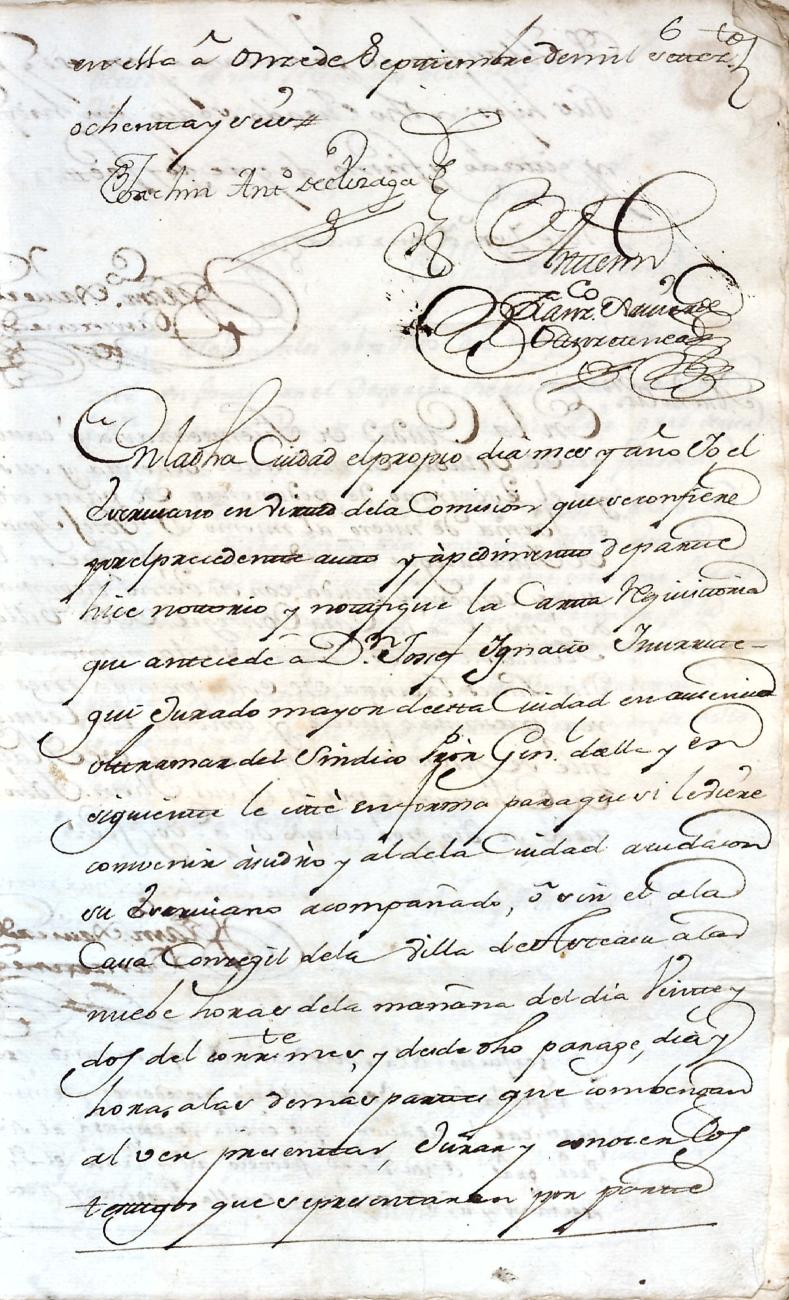 en ella â onze de Septiembre de mil setez.tos
ochenta y seis#
Joachin Ant.o de Elizaga
Antemi
Franz.co Xavier de
Larretlenea
En la dha Ciudad el propio dia mes y año Yo el
Escrivano en virtud dela Comision que se confiere
por el precedente auto y àpedimento de parte
hice nottorio y notifique la Carta Requisitoria
que antecede â D.n Josef Ygnacio Yturrute-
gui Jurado mayor de esta Ciudad en ausencia
ultramar del Sindico Pròr Gen.l de ella y en
siguiente le cittè en forma para que si lediere
convenir àsudrò y al dela Ciudad acuda con
su Escrivano acompañado, ô sin el ala
Casa Conzegil dela Villa de Asteasu alas
nuebe horas dela mañana del dia Veinte y
dos del corr.te mes, y desde dho parage, dia y
hora, alas demas partes que combengan
al ver presentar, Jurar y conozer los
testigos que se presentaren por parte